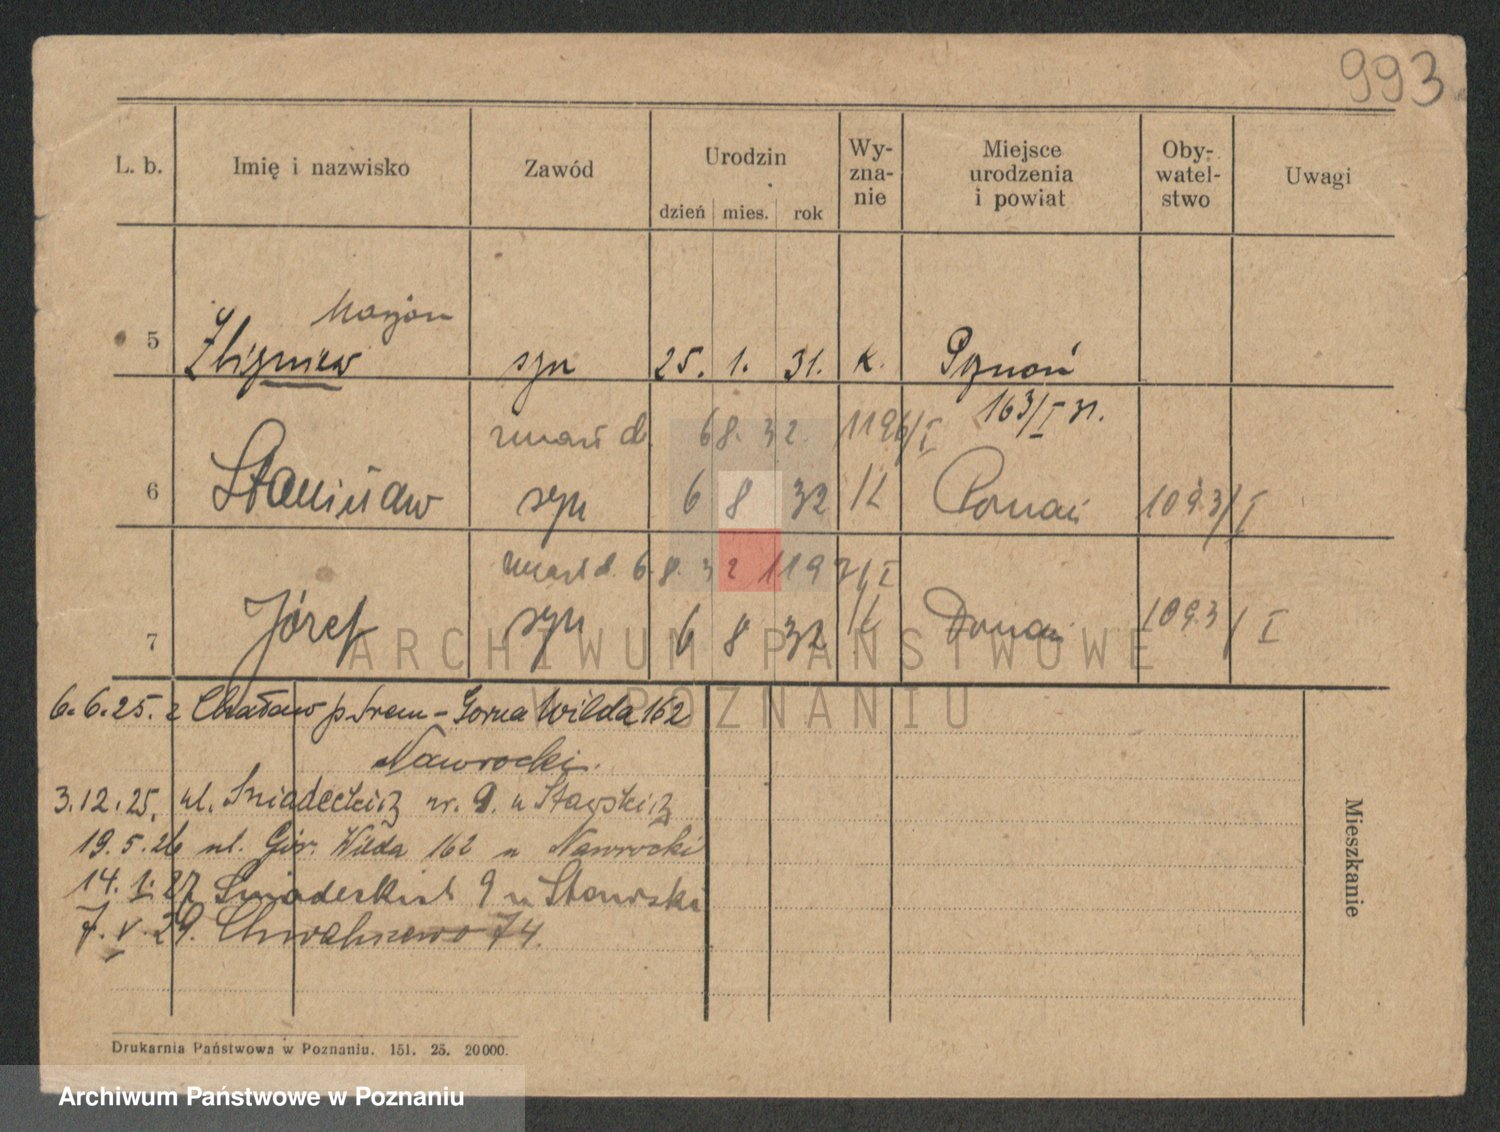 993
L. b. Imię i nazwisko Zawód Urodzin Wy-zna-nie Miejsce urodzenia i powiat Oby-watel-stwo Uwagi
dzień mies. rok
Marjan
5 Zbigniew syn 25. 1. 31. k. Poznań
163/I 31.
zmarł d. 6 8. 32. 1196/I
6 Stanisław syn 6 8 32 k Poznań 1093/I
zmarł d. 6. 8. 32 1197/I
7 Józef syn 6 8 32 k Poznań 1093/I
6.6.25. z Chaław p. Śrem - Górna Wilda 162
Nawrocki.
3.12.25. ul. Śniadeckich nr. 9. u
19.5.26 ul. Gór. Wilda 162 u Nawrocki
14.1.27 Śniadeckich 9 u Stawski
7.V.29. Chwaliszewo 74.
Mieszkanie
Drukarnia Państwowa w Poznaniu. 151. 25. 20000.
ARCHIWUM PAŃSTWOWE
W POZNANIU
Archiwum Państwowe w Poznaniu